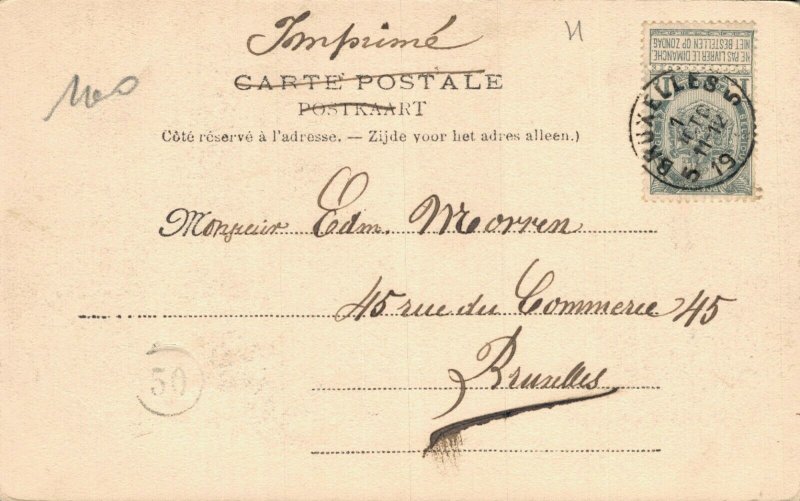 Imprimé
CARTE POSTALE
POSTKAART
Côté réservé à l'adresse. — Zijde voor het adres alleen.)
NE PAS LIVRER LE DIMANCHE
NIET BESTELLEN OP ZONDAG
BRUXELLES 5
7
11-12
5 19
Monsieur Edm. Morren
45 rue du Commerce 45
Bruxelles
50